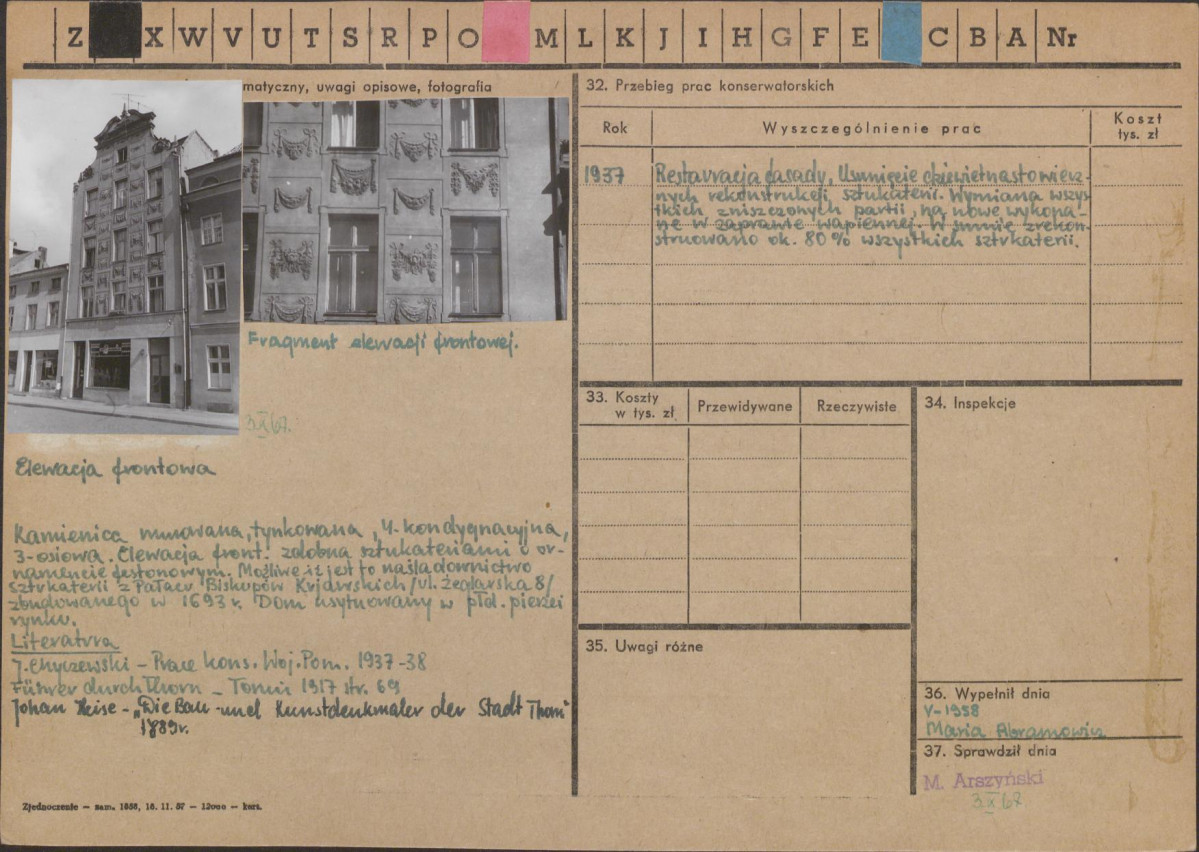 Z X W V U T S R P O M L K J I H G F E C B A Nr
matyczny, uwagi opisowe, fotografia
Fragment elewacji frontowej.
3 X 67.
Elewacja frontowa
Kamienica murowana, tynkowana, 4-kondygnacyjna,
3-osiowa. Elewacja front. zdobna sztukateriami o or-
namencie festonowym. Możliwe iż jest to naśladownictwo
sztukaterii z Pałacu Biskupów Kujawskich /ul. Żeglarska 8/
zbudowanego w 1693 r. Dom usytuowany w płd. pierzei
rynku.
Literatura
J. Chyczewski - Prace kons. Woj. Pom. 1937-38
Führer durch Thorn - Toruń 1917 str. 69
Johan Heise - „Die Bau- und Kunstdenkmäler der Stadt Thorn"
1889 r.
Zjednoczenie — zam. 1656, 16. 11. 57 — 12000 — kart.
32. Przebieg prac konserwatorskich
Rok
Wyszczególnienie prac
Koszt
tys. zł
1937
Restauracja fasady. Usunięcie dziewiętnastowiecz-
nych rekonstrukcji sztukaterii. Wymiana wszys-
tkich zniszczonych partii, na nowe wykona-
ne w zaprawie wapiennej. W sumie zrekon-
struowano ok. 80% wszystkich sztukaterii.
33. Koszty
w tys. zł
Przewidywane
Rzeczywiste
34. Inspekcje
35. Uwagi różne
36. Wypełnił dnia
V-1958
Maria Abramowicz
37. Sprawdził dnia
M. Arszyński
3 X 67